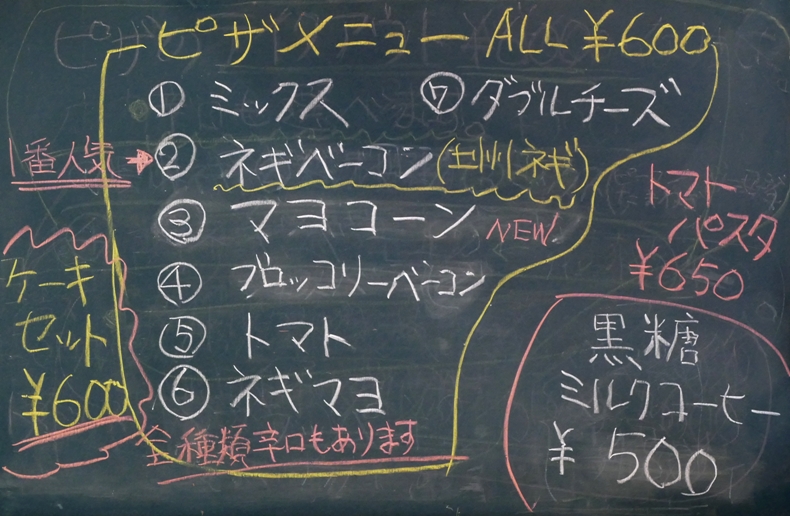 ピザメニュー ALL ¥600
① ミックス
⑦ ダブルチーズ
1番人気→② ネギベーコン(土州ネギ)
③ マヨコーン NEW
④ ブロッコリーベーコン
⑤ トマト
⑥ ネギマヨ
全種類辛口もあります
ケーキ
セット
¥600
トマト
パスタ
¥650
黒糖
ミルクコーヒー
¥500